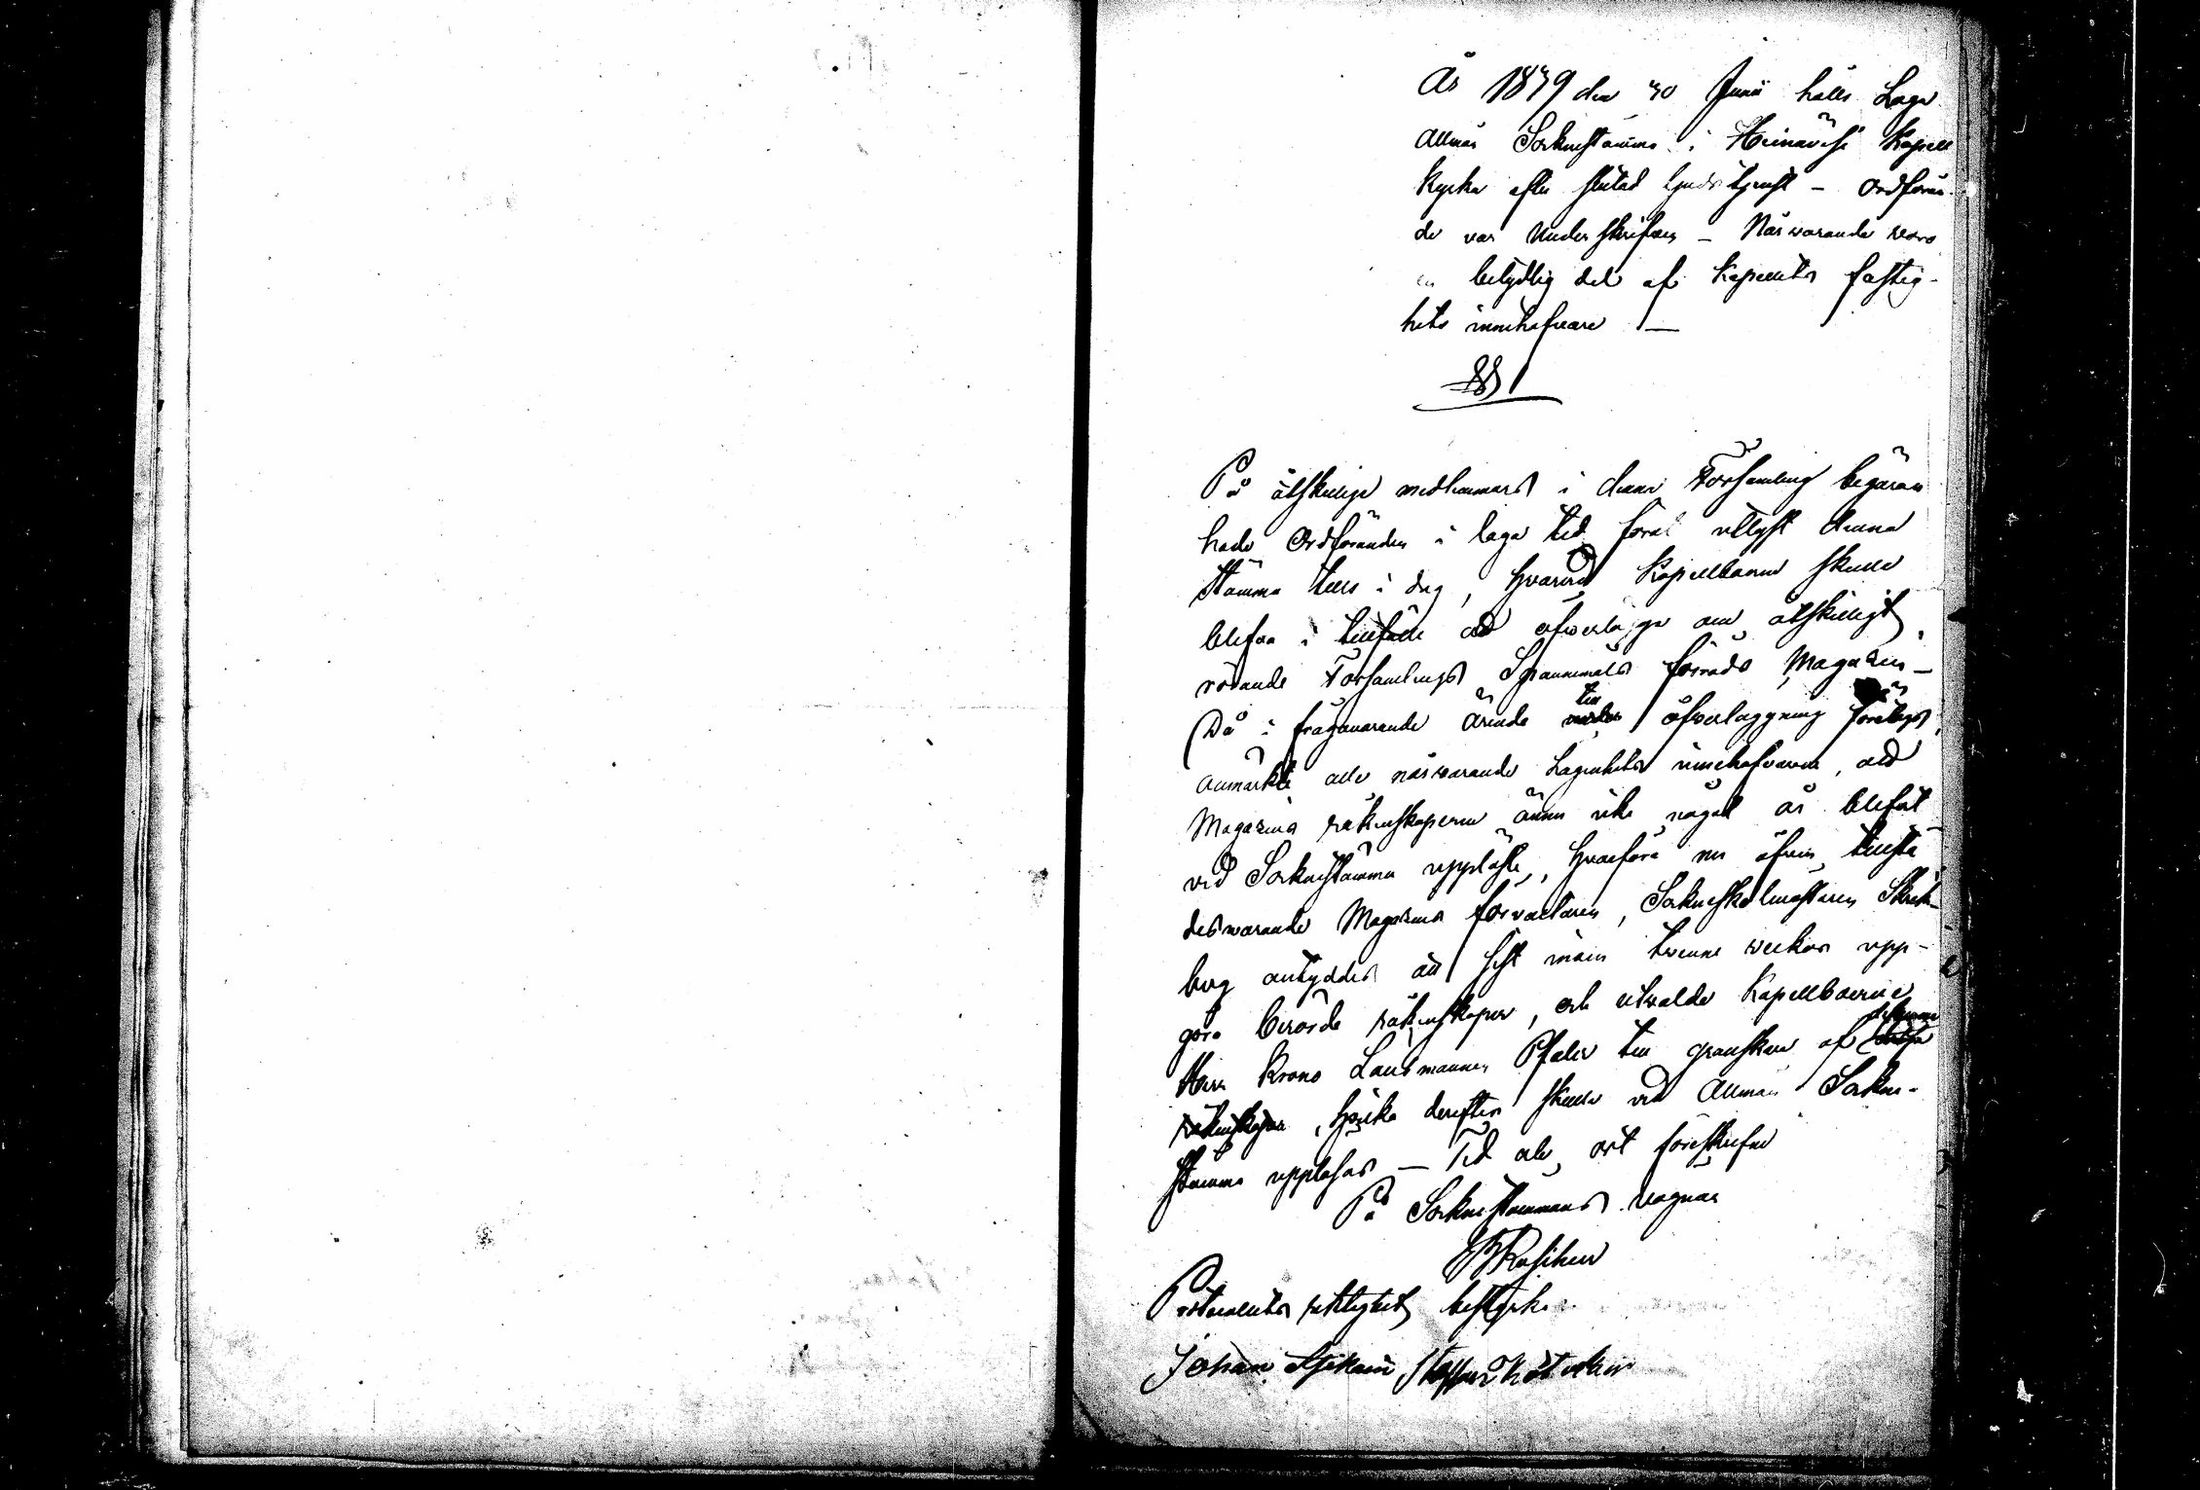 År 1839 den 30 Junii hölls Laga
Allmän Sockenstämma i Heinävesi Kapell
Kyrka efter slutad Gudstjenst – Ordföran-
de var Underskrifven – Närvarande voro
en betydlig del af Kapellets fastig-
hets innehafvare —
§§ 1
På åtskillige medlemmars i denna Församling begäran
hade Ordföranden i laga tid förut utlyst denna
Stämma tills i dag, hvarvid Kapellboerne skulle
blifva i tillfälle att öfverlägga om åtskilligt
rörande Församlings Spannmåls förråds Magazin –
Då i frågavarande ärende till öfverläggning företogs,
anmärkte alle närvarande Lägenhets innehafvarene, att
Magazins räkenskaperne ännu icke något år blifvit
vid Sockenstämma uppläste, hvarföre nu äfven tillstä-
desvarande Magazins förvaltaren, Sockneskolmästaren
borg antyddes att sist inom trenne veckor upp-
göra berörde räkenskaper, och utvalde Kapellboerne
Herr Krono Länsmannen Pfaler till granskare af desamme
räkenskaper, hvilka derefter skulle vid Allmän Socken-
stämma uppläsas — Tid och ort föreskrefne
På Sockenstämmans vägnar
Protocollets riktighet bestyrka
Johan Staffan